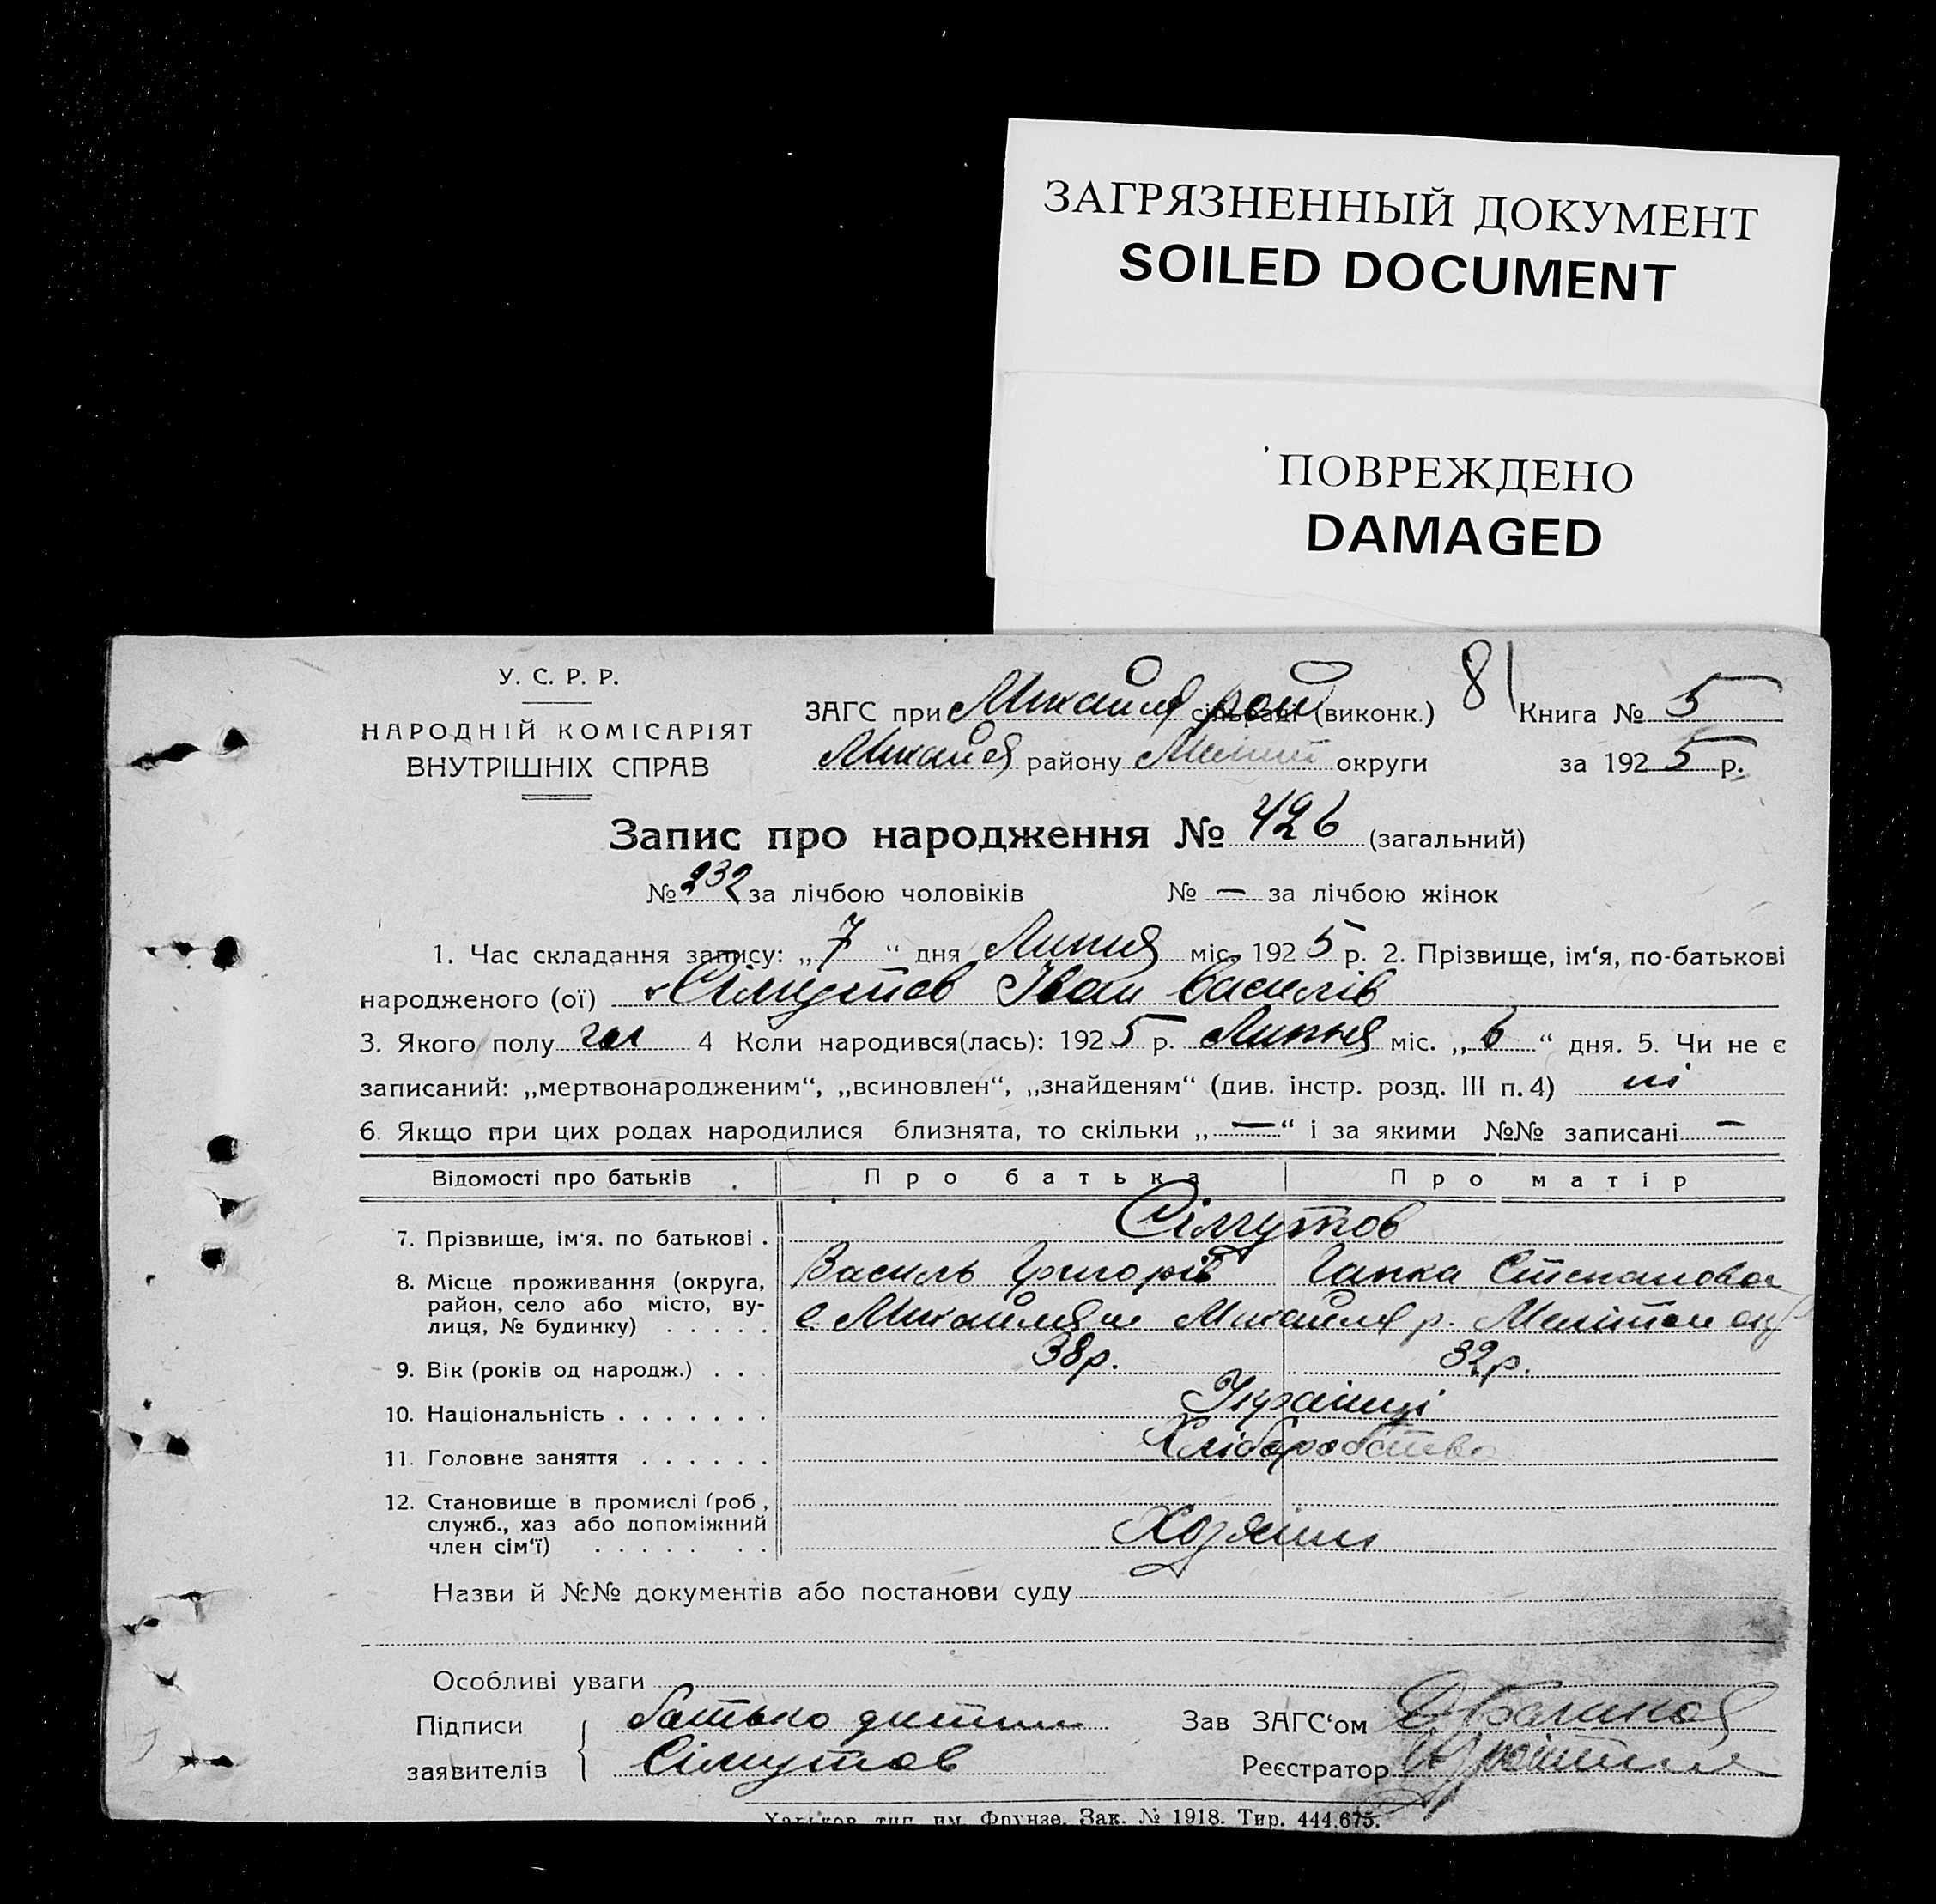 ЗАГРЯЗНЕННЫЙ ДОКУМЕНТ
SOILED DOCUMENT
ПОВРЕЖДЕНО
DAMAGED
У. С. Р. Р.
НАРОДНІЙ КОМІСАРІЯТ
ВНУТРІШНІХ СПРАВ
81
ЗАГС при Михайл рай сільраді (виконк.) Книга № 5
Михайл району Меліт округи за 1925 р.
Запис про народження № 426 (загальний)
№ 232 за лічбою чоловіків № — за лічбою жінок
1. Час складання запису: „7“ дня Липня міс. 1925 р. 2. Прізвище, ім‘я, по-батькові
народженого (ої) Сімутов Іван Василів
3. Якого полу чол 4 Коли народився(лась): 1925 р. Липня міс. „6“ дня. 5. Чи не є
записаний: „мертвонародженим“, „всиновлен“, „знайденям“ (див. інстр. розд. III п. 4) ні
6. Якщо при цих родах народилися близнята, то скільки „—“ і за якими №№ записані —
Відомості про батьків . Про батька Про матір
7. Прізвище, ім‘я, по батькові . Сімутов
Василь Григорів Гапка Степанова
8. Місце проживання (округа, район, село або місто, ву-лиця, № будинку) . . . . . с. Михайл Михайл р. Мелітоп окр
9. Вік (років од народж.) . . . 38р. 32р.
10. Національність . . . . . . . Українці
11. Головне заняття . . . . . . Хліборобство
12. Становище в промислі (роб., служб., хаз або допоміжний член сім‘ї) . . . . . . . Хозяїни
Назви й №№ документів або постанови суду
Особливі уваги
Підписи батько дитини Зав ЗАГС‘ом
заявителів Сімутов Реєстратор
Харьков, тип. им. Фрунзе. Зак. № 1918. Тир. 444.675.